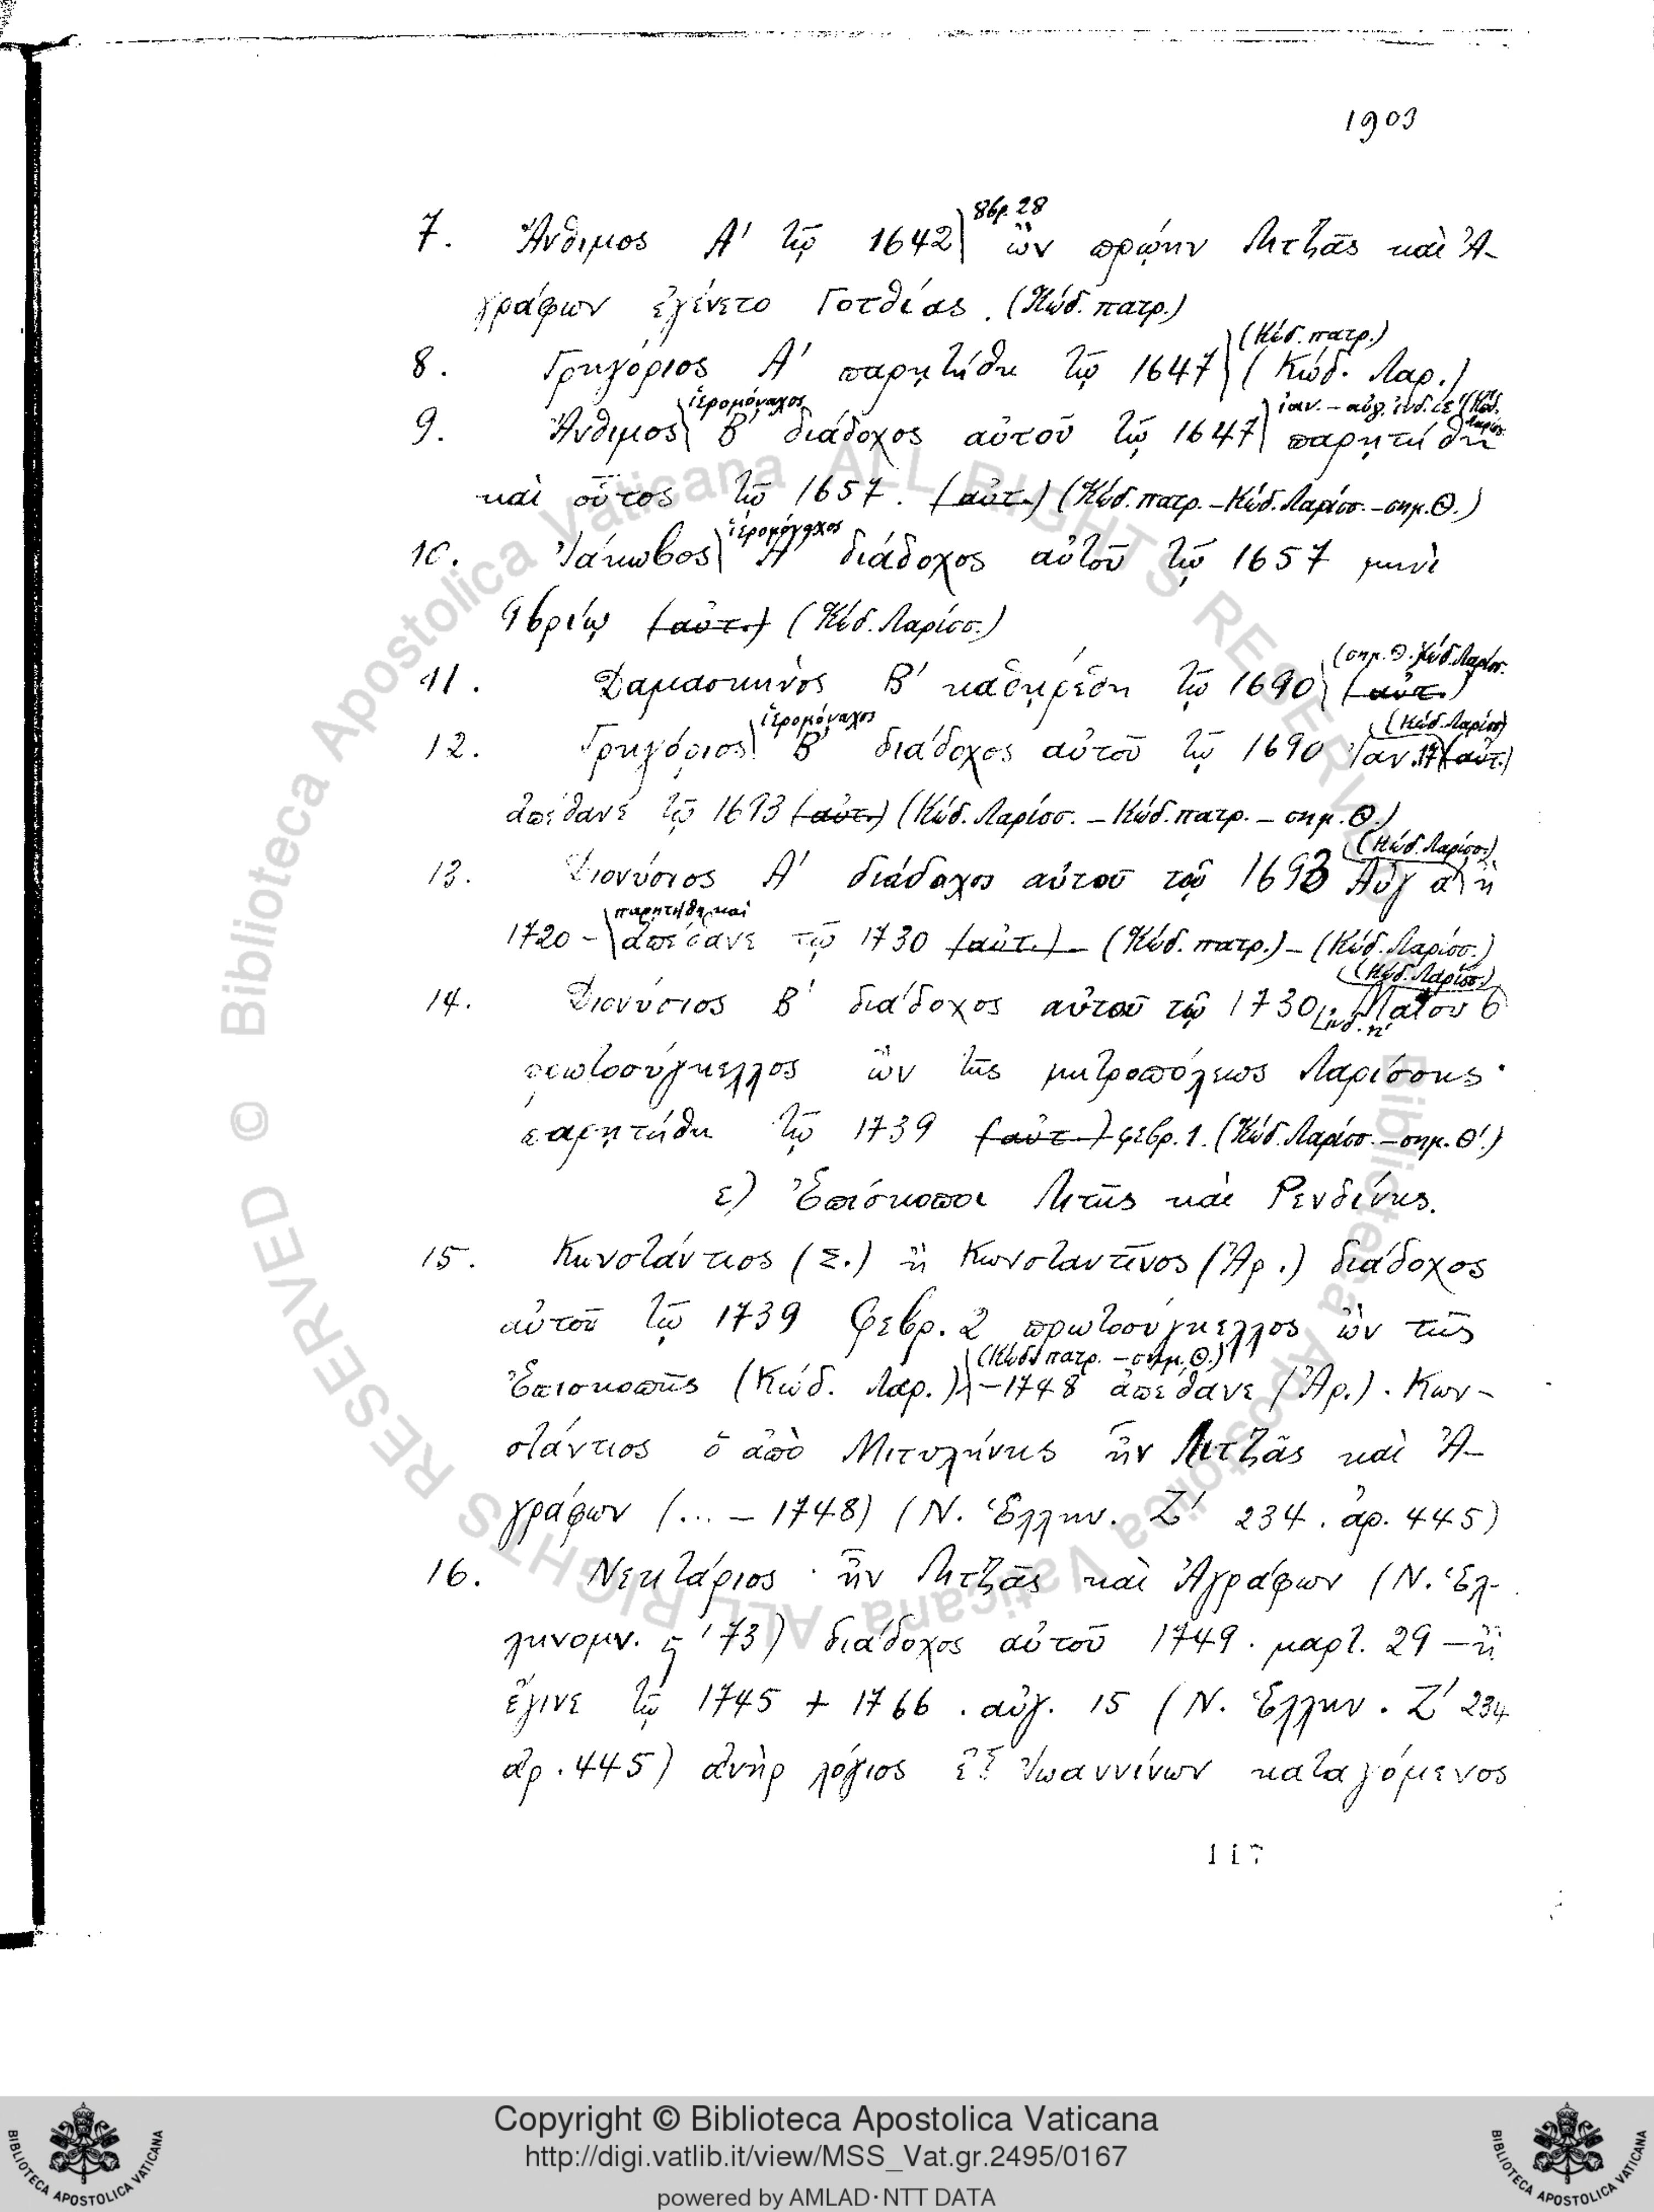 1903
8βρ. 28
7. Ἄνθιμος Α' τῷ 1642 ὢν πρῴην Λητζᾶς καὶ Ἀ-
γράφων ἐγένετο Γοτθίας. (Κώδ. πατρ.)
(Κώδ. πατρ.)
8. Γρηγόριος Α' παρῃτήθη τῷ 1647 (Κώδ. Λαρ.)
ἱερομόναχος ἰαν. – αὐγ. ἰνδ. ιε' (Κώδ. Λαρίσ.
9. Ἄνθιμος Β' διάδοχος αὐτοῦ τῷ 1647 παρῃτήθη
καὶ οὗτος τῷ 1657. (αὐτ.) (Κώδ. πατρ. – Κώδ. Λαρίσσ. – σημ. Θ.)
ἱερομόναχος
10. Ἰάκωβος Α' διάδοχος αὐτοῦ τῷ 1657 μηνὶ
9βρίῳ (αὐτ.) (Κώδ. Λαρίσσ.)
(σημ. Θ. Κώδ. Λαρίσ.
11. Δαμασκηνὸς Β' καθῃρέθη τῷ 1690 (αὐτ.)
ἱερομόναχος (Κώδ. Λαρίσσ)
12. Γρηγόριος Β' διάδοχος αὐτοῦ τῷ 1690 Ἰαν. 17 (αὐτ.)
ἀπέθανε τῷ 1693 (αὐτ.) (Κώδ. Λαρίσσ. – Κώδ. πατρ. – σημ. Θ.)
(Κώδ. Λαρίσσ)
13. Διονύσιος Α' διάδοχος αὐτοῦ τῷ 1693 Αὐγ α' ἢ
παρῃτήθη καὶ
1720 – ἀπέθανε τῷ 1730 (αὐτ.) – (Κώδ. πατρ.) – (Κώδ. Λαρίσσ.)
(Κώδ. Λαρίσσ)
14. Διονύσιος Β' διάδοχος αὐτοῦ τῷ 1730 ἰνδ. η' Μαΐου 6
πρωτοσύγκελλος ὢν τῆς μητροπόλεως Λαρίσσης·
παρῃτήθη τῷ 1739 (αὐτ.) φεβρ. 1. (Κώδ. Λαρίσσ. – σημ. Θ'.)
ε) Ἐπίσκοποι Λιτῆς καὶ Ρενδίνης.
15. Κωνστάντιος (Σ.) ἢ Κωνσταντῖνος (Ἀρ.) διάδοχος
αὐτοῦ τῷ 1739 Φεβρ. 2 πρωτοσύγκελλος ὢν τῆς
(Κώδ. πατρ. – σημ. Θ.)
Ἐπισκοπῆς (Κώδ. Λαρ.) – 1748 ἀπέθανε (Ἀρ.). Κων-
στάντιος ὁ ἀπὸ Μιτυλήνης ἦν Λιτζᾶς καὶ Ἀ-
γράφων (... – 1748) (Ν. Ἑλλην. Ζ' 234. ἀρ. 445)
16. Νεκτάριος · ἦν Λητζᾶς καὶ Ἀγράφων (Ν. Ἑλ-
ληνομν. ς' 73) διάδοχος αὐτοῦ 1749. μαρτ. 29 – ἢ
ἔγινε τῷ 1745 + 1766. αὐγ. 15 (Ν. Ἑλλην. Ζ' 234
ἀρ. 445) ἀνὴρ λόγιος ἐξ Ἰωαννίνων καταγόμενος
117
© Biblioteca Apostolica Vaticana ALL RIGHTS RESERVED
© Biblioteca Apostolica Vaticana ALL RIGHTS RESERVED
Copyright © Biblioteca Apostolica Vaticana
http://digi.vatlib.it/view/MSS_Vat.gr.2495/0167
powered by AMLAD·NTT DATA
BIBLIOTECA APOSTOLICA VATICANA
BIBLIOTECA APOSTOLICA VATICANA